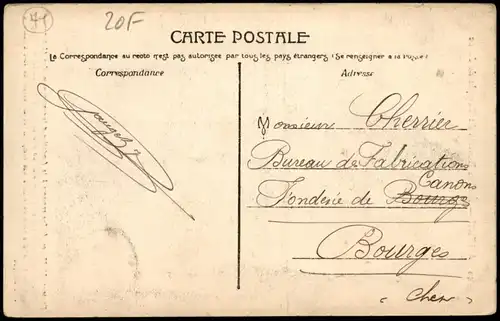 41
20F
CARTE POSTALE
La Correspondance au recto n'est pas autorisée par tous les pays étrangers (Se renseigner à la Poste)
Correspondance
Adresse
Monsieur Cherrier
Bureau de Fabrications
Canons
Fonderie de Bourges
Bourges
(Cher)